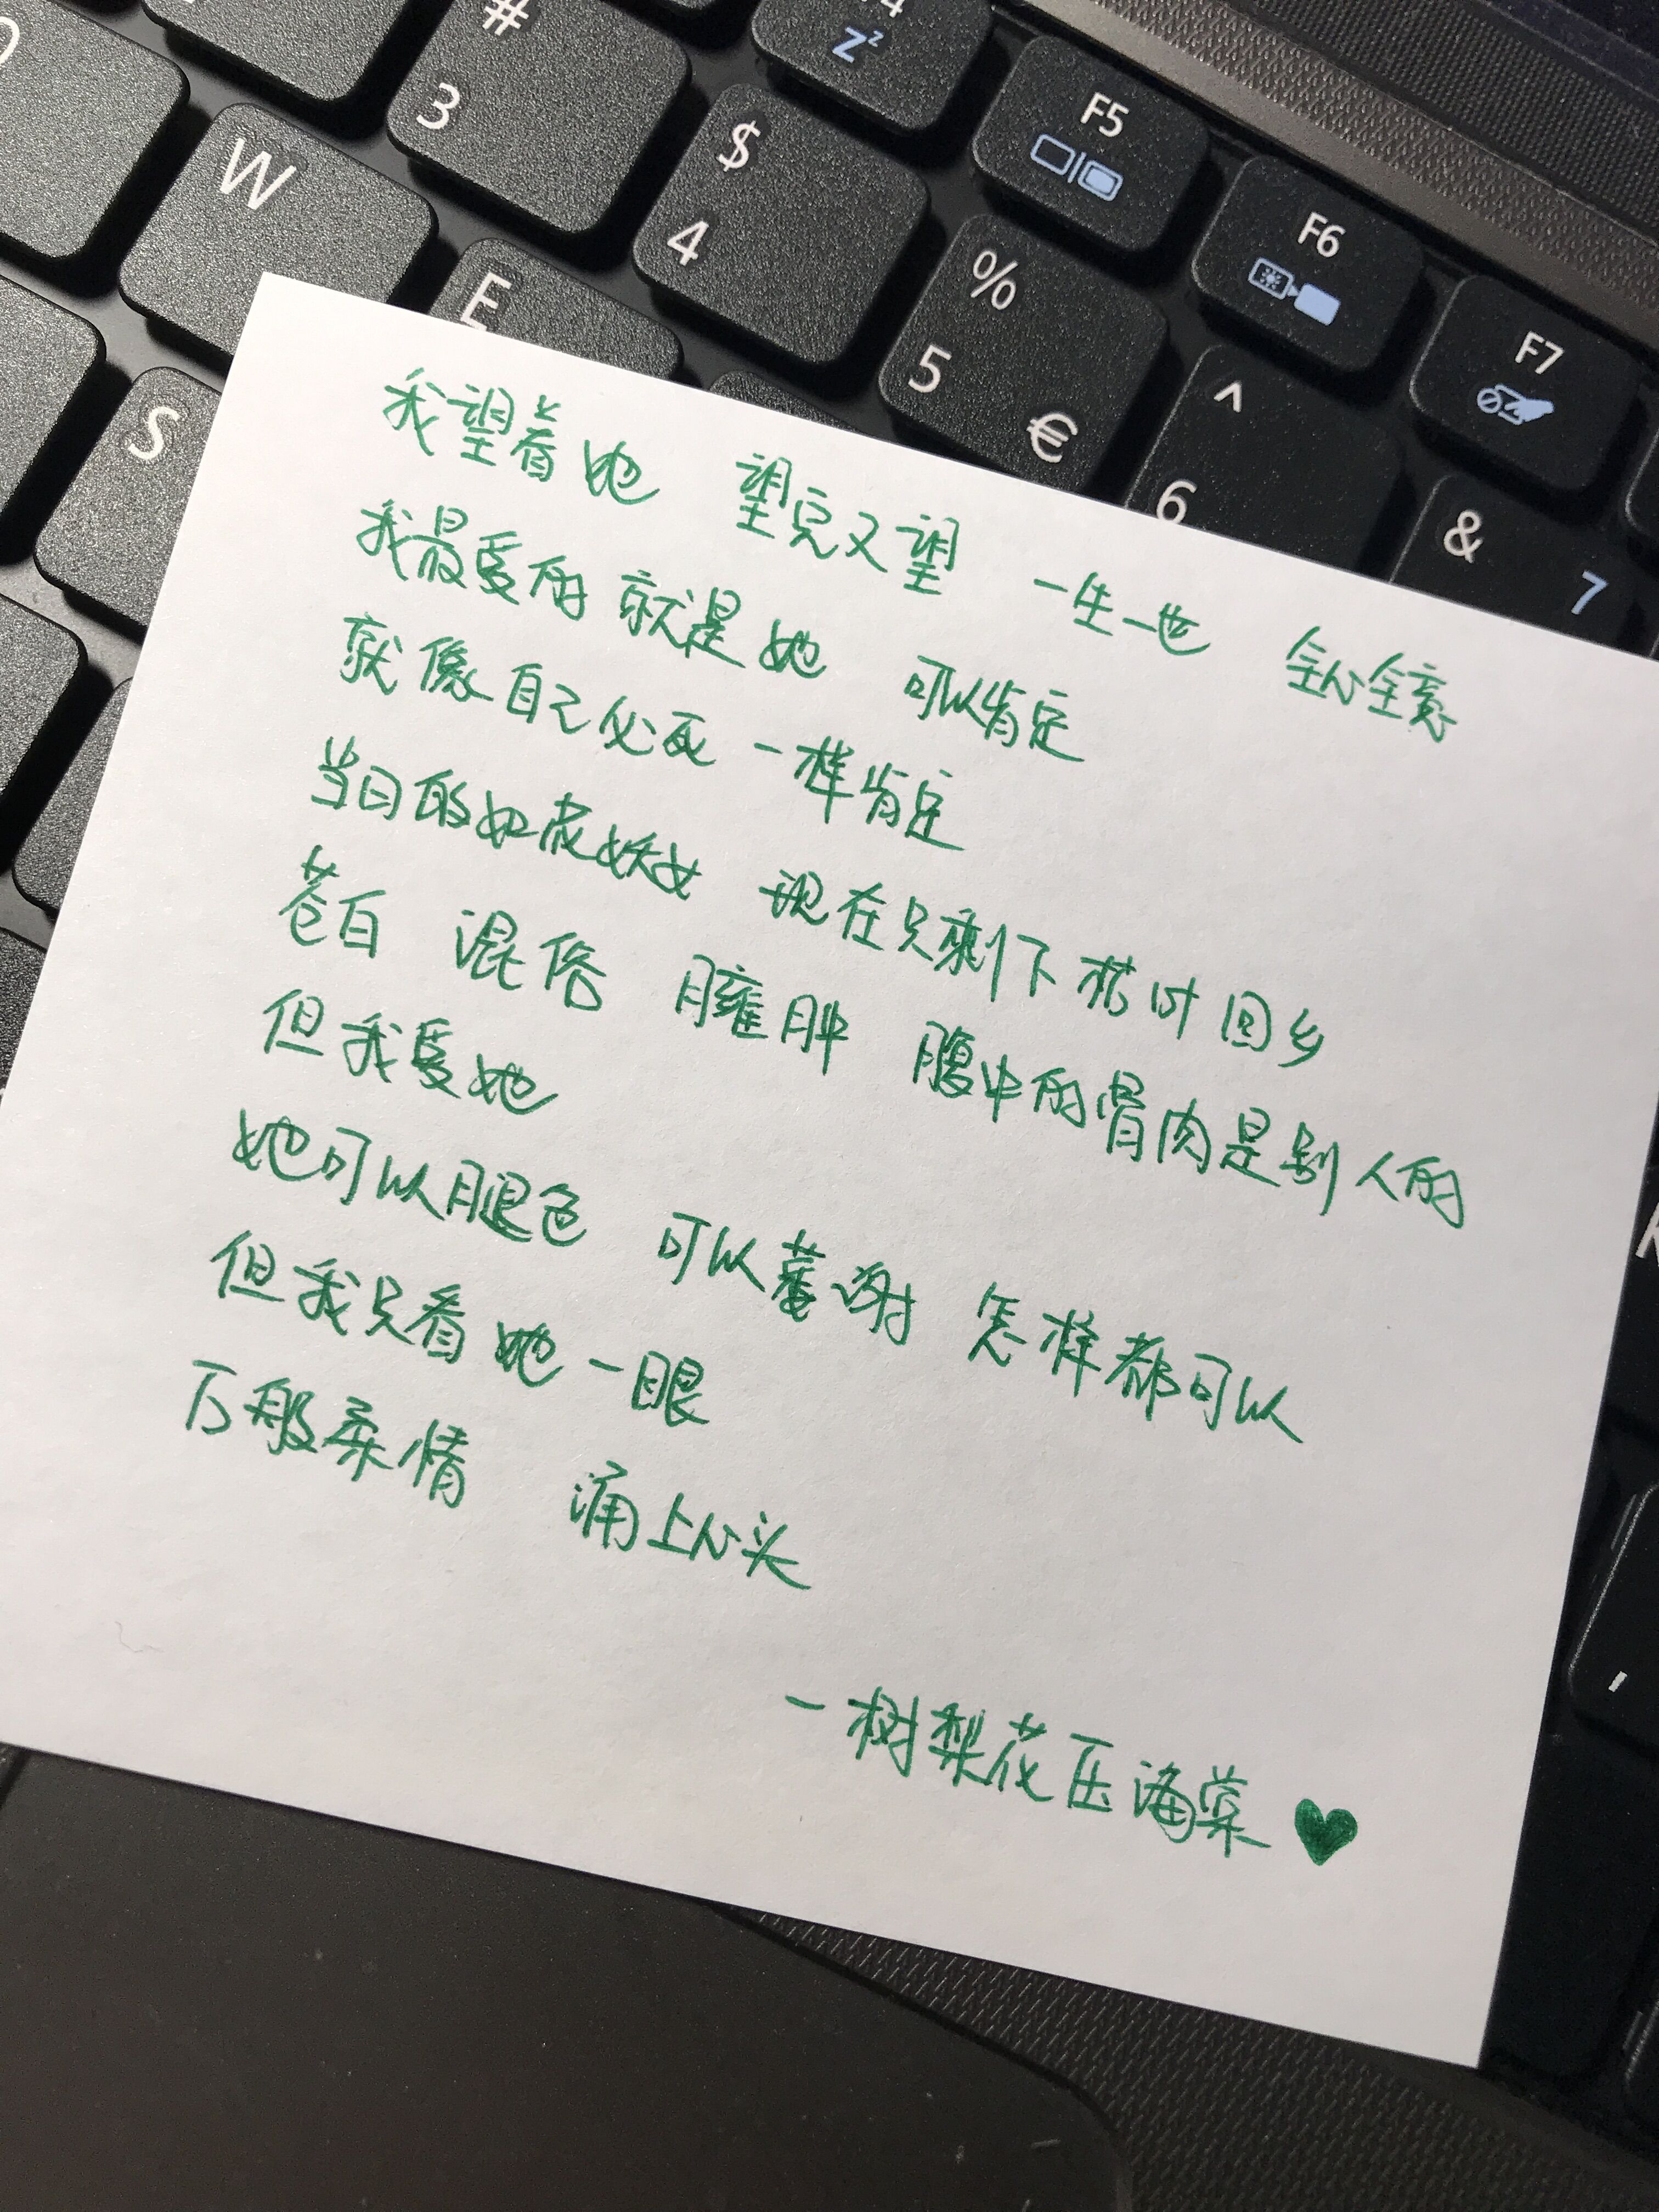 #
3
F4
Zz
W
$
4
F5
E
%
5
€
F6
S
^
6
F7
&
7
我望着她 望完又望 一生一世 全心全意
我最爱的就是她 可以肯定
就像自己必死一样肯定
当日的如花妖女 现在只剩下枯叶回乡
苍白 混俗 臃肿 腹中的骨肉是别人的
但我爱她
她可以腿色 可以萎谢 怎样都可以
但我只看她一眼
万般柔情 涌上心头
一树梨花压海棠
,